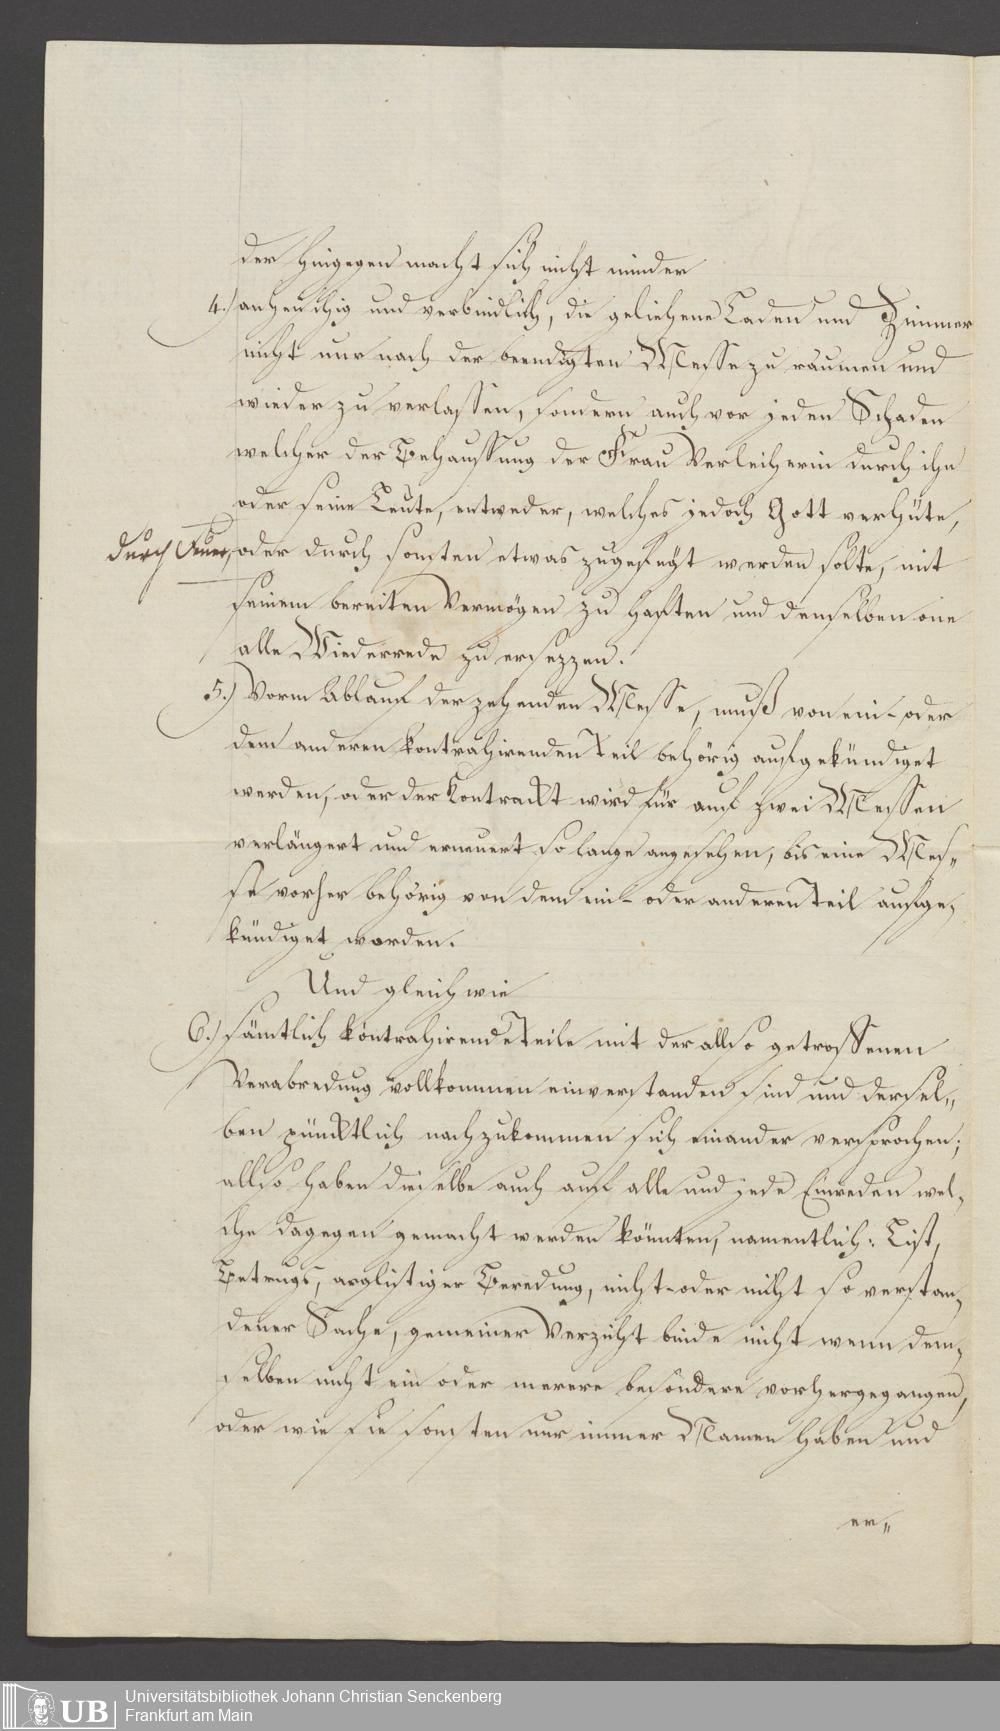 der hingegen macht sich nicht minder
4.) anheischig und verbindlich, die geliehene Laden und Zimmer
nicht nur nach der beendigten Messe zu räumen und
wieder zu verlassen, sondern auch vor jeden Schaden
welcher der Behaussung der Frau Verleiherin durch ihn
oder seine Leute, entweder, welches jedoch Gott verhüte,
durch Feuer, oder durch sonsten etwas zugefügt werden solte, mit
seinem bereiten Vermögen zu haften und denselben one
alle Wiederrede zu ersezzen.
5.) Vorm Ablauf der zehenden Messe, muß von ein- oder
dem anderen kontrahirenden Teil behörig aufgekündiget
werden, oder der Kontrackt wird für auf zwei Messen
verlängert und erneuert so lange angesehen, bis eine Mes„
se vorher behörig von dem ein- oder anderen Teil aufge„
kündiget worden.
Und gleichwie
6.) sämtlich kontrahirende Teile mit der allso getroffenen
Verabredung vollkommen einverstanden sind und dersel„
ben pünktlich nachzukommen sich einander versprochen;
allso haben dieselbe auch auf alle und jede Einreden wel„
che dagegen gemacht werden könnten, namentlich: List,
Betrugs, arglistiger Beredung, nicht- oder nicht so verstan„
dener Sache, gemeiner Verzicht binde nicht wenn dem„
selben nicht ein oder merere besondere vorhergegangen,
oder wie sie sonsten nur immer Namen haben und
er„
UB Universitätsbibliothek Johann Christian Senckenberg
Frankfurt am Main